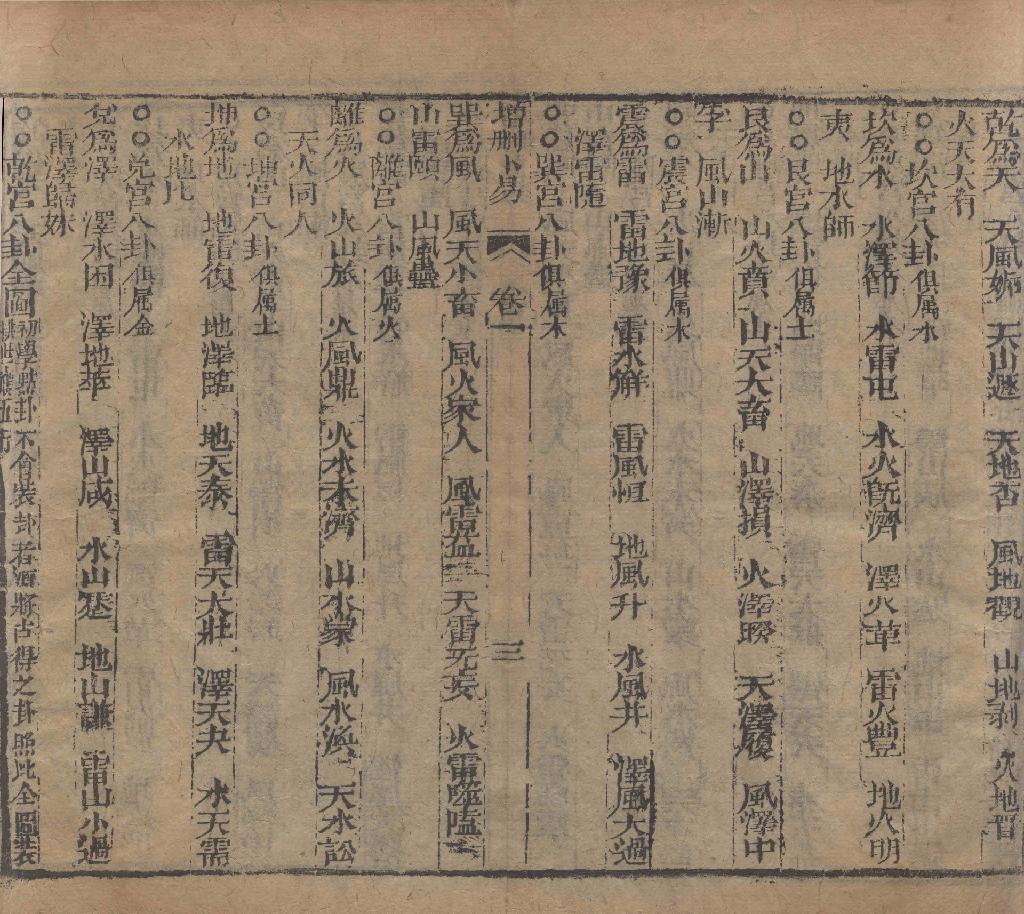 乾爲天　天風姤　天山遯　天地否　風地觀　山地剥　火地晋
火天大有
○○坎宫八卦俱属水
坎为水　水澤節　水雷屯　水火旣濟　澤火革　雷火豐　地火明
夷　地水師
○○艮宫八卦俱属土
艮爲山　山火賁　山天大畜　山澤損　火澤睽　天澤履　風澤中
孚　風山漸
○○震宫八卦俱属木
震爲雷　雷地豫　雷水解　雷風恒　地風升　水風井　澤風大過
澤雷随
○○巽宫八卦俱属木
增刪卜易　卷一　三
巽爲風　風天小畜　風火家人　風雷益　天雷无妄　火雷噬嗑
山雷頤　山風蠱
○○離宫八卦俱属火
離爲火　火山旅　火風鼎　火水未濟　山水蒙　風水渙　天水訟
天火同人
○○坤宫八卦俱属土
坤爲地　地雷復　地澤臨　地天泰　雷天大壯　澤天夬　水天需
水地比
○○兑宫八卦俱属金
兑爲澤　澤水困　澤地萃　澤山咸　水山蹇　地山謙　雷山小過
雷澤歸妹
○○乾宫八卦全圖　初學點卦不會裝卦者須將占得之卦照此全圖裝